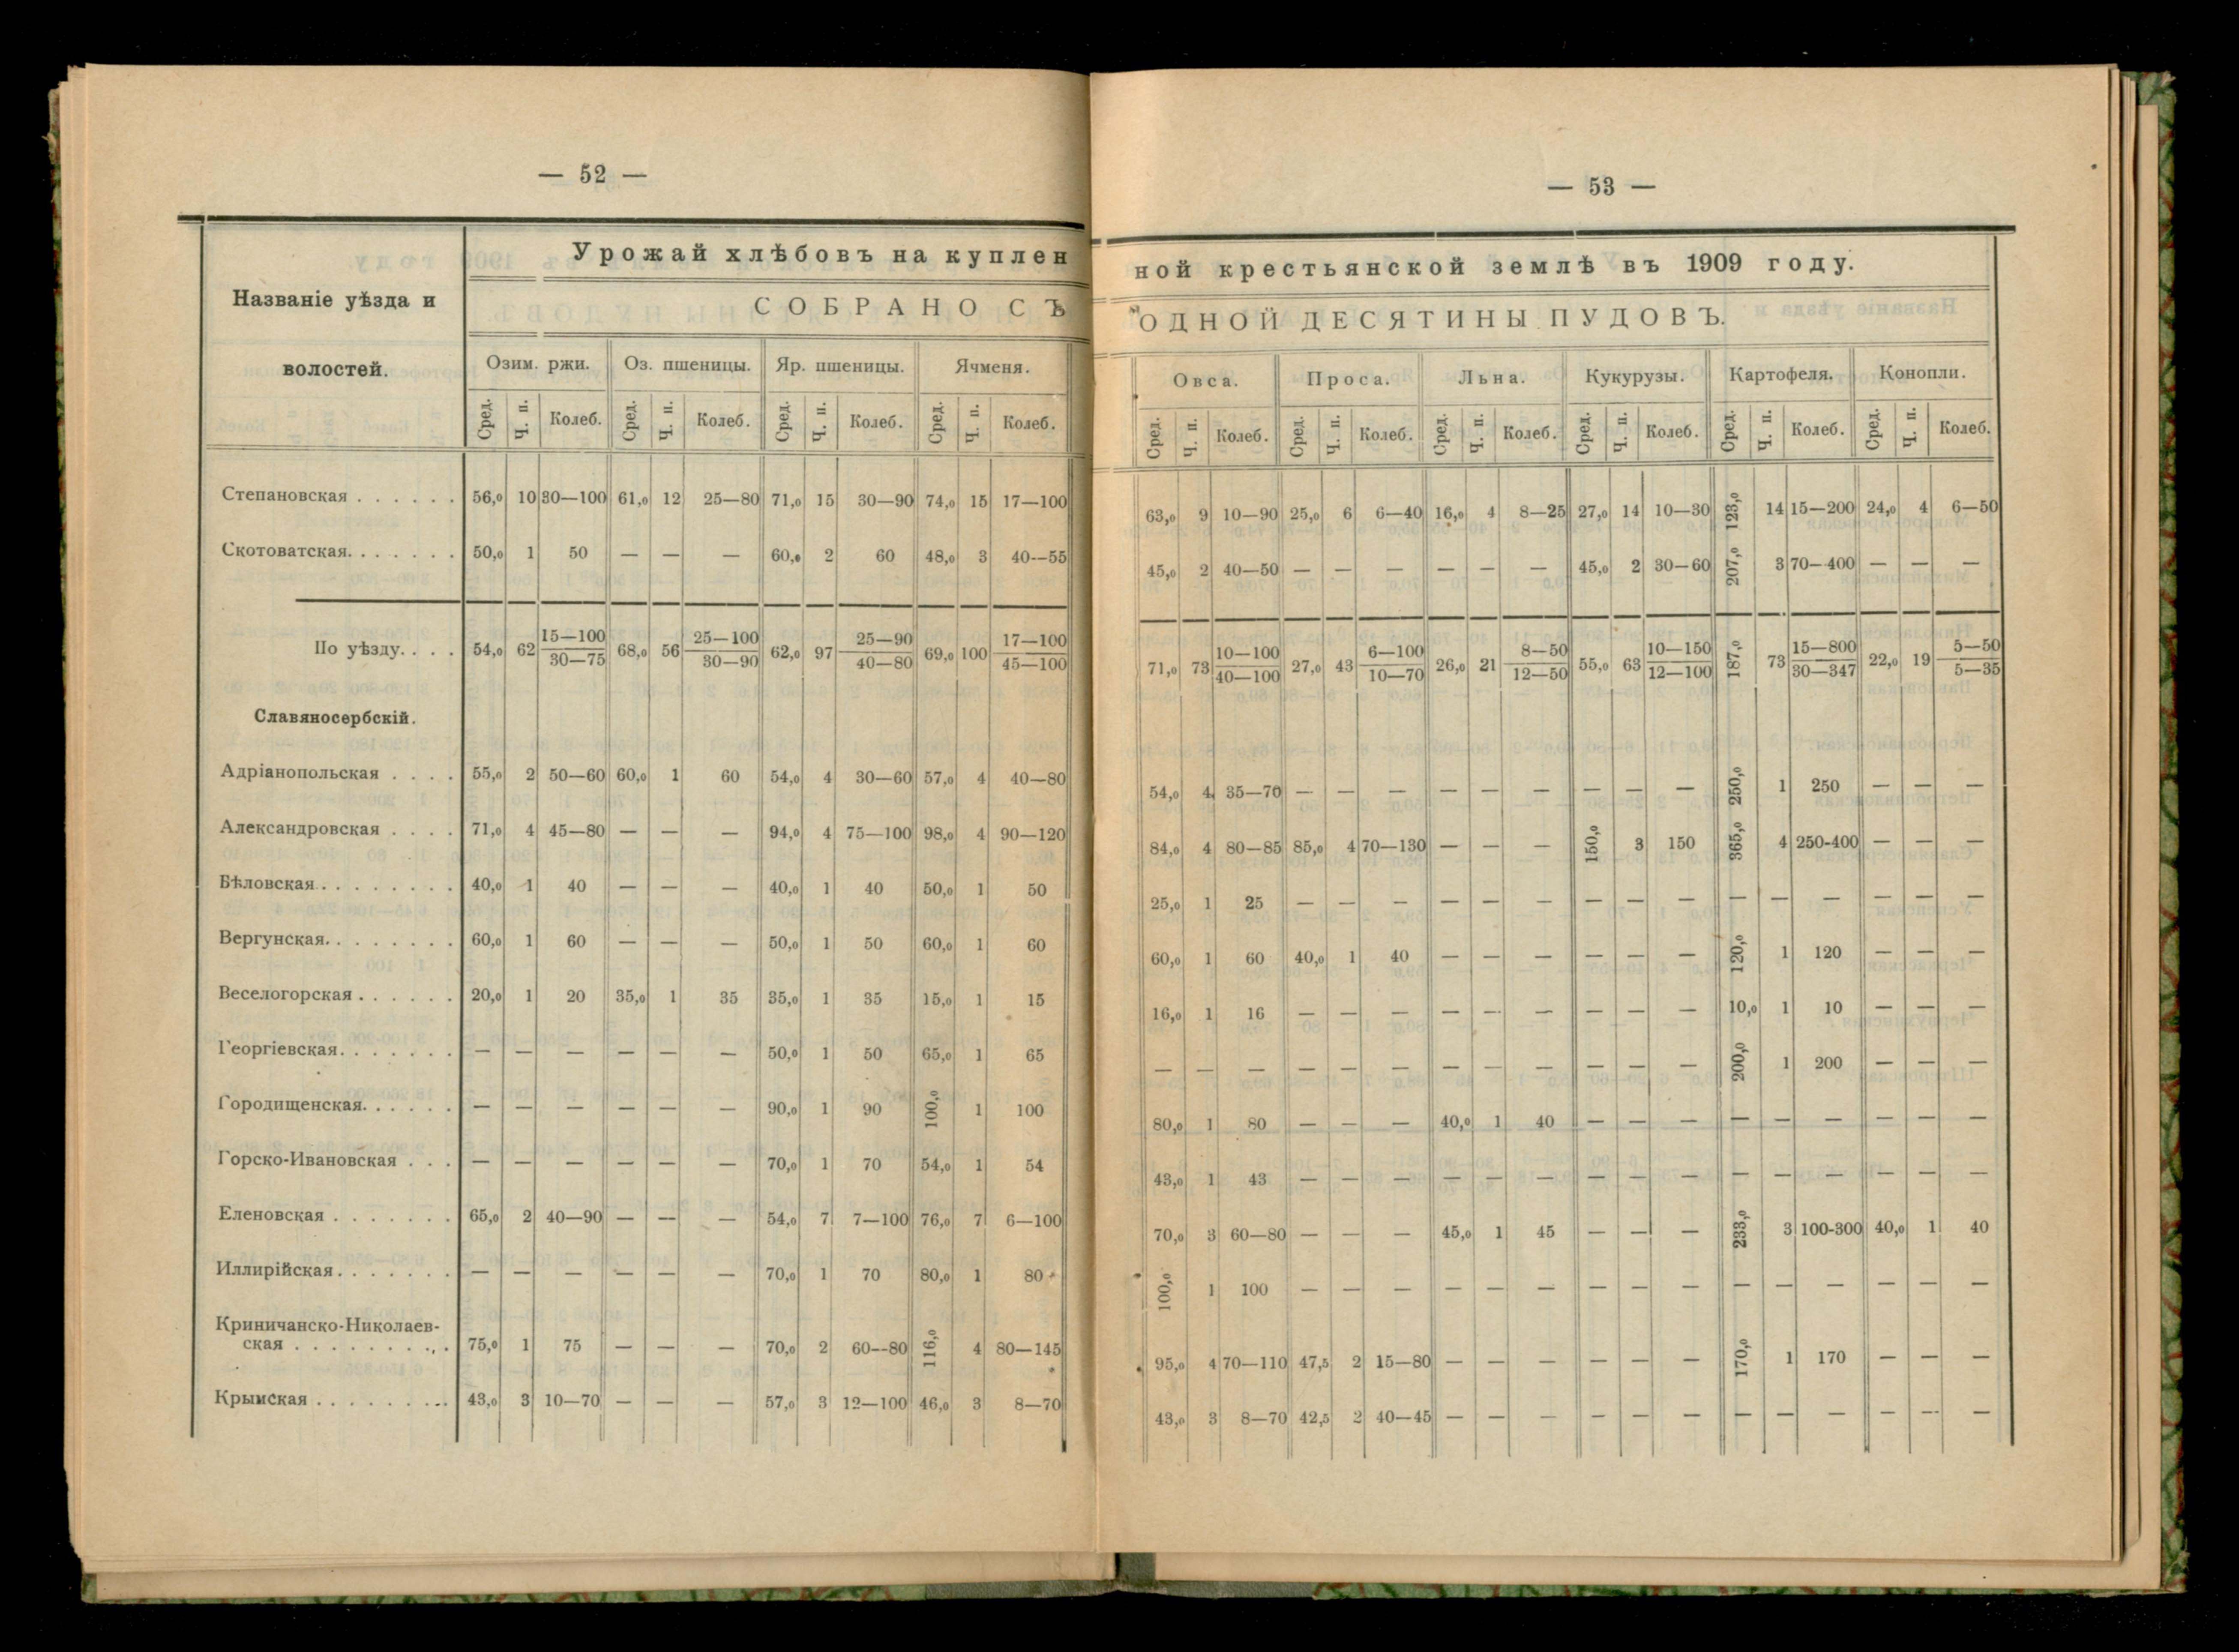 — 52 —
Названіе уѣзда и
волостей.
Урожай хлѣбовъ на куплен
СОБРАНО СЪ
Озим. ржи. Оз. пшеницы. Яр. пшеницы. Ячменя.
Сред. Ч. п. Колеб. Сред. Ч. п. Колеб. Сред. Ч. п. Колеб. Сред. Ч. п. Колеб.
Степановская . . . . . . 56,0 10 30—100 61,0 12 25—80 71,0 15 30—90 74,0 15 17—100
Скотоватская. . . . . . . 50,0 1 50 — — — 60,0 2 60 48,0 3 40—55
По уѣзду. . . . 54,0 62 15—100 30—75 68,0 56 25—100 30—90 62,0 97 25—90 40—80 69,0 100 17—100 45—100
Славяносербскій.
Адріанопольская . . . . 55,0 2 50—60 60,0 1 60 54,0 4 30—60 57,0 4 40—80
Александровская . . . . 71,0 4 45—80 — — — 94,0 4 75—100 98,0 4 90—120
Бѣловская. . . . . . . . 40,0 1 40 — — — 40,0 1 40 50,0 1 50
Вергунская. . . . . . . . 60,0 1 60 — — — 50,0 1 50 60,0 1 60
Веселогорская . . . . . . 20,0 1 20 35,0 1 35 35,0 1 35 15,0 1 15
Георгіевская. . . . . . . — — — — — — 50,0 1 50 65,0 1 65
Городищенская. . . . . . — — — — — — 90,0 1 90 100,0 1 100
Горско-Ивановская . . . — — — — — — 70,0 1 70 54,0 1 54
Еленовская . . . . . . . 65,0 2 40—90 — — — 54,0 7 7—100 76,0 7 6—100
Иллирійская . . . . . . . — — — — — — 70,0 1 70 80,0 1 80
Криничанско-Николаев-
ская . . . . . . . . . . 75,0 1 75 — — — 70,0 2 60—80 116,0 4 80—145
Крымская . . . . . . . . . 43,0 3 10—70 — — — 57,0 3 12—100 46,0 3 8—70
— 53 —
ной крестьянской землѣ въ 1909 году.
ОДНОЙ ДЕСЯТИНЫ ПУДОВЪ.
Овса. Проса. Льна. Кукурузы. Картофеля. Конопли.
Сред. Ч. п. Колеб. Сред. Ч. п. Колеб. Сред. Ч. п. Колеб. Сред. Ч. п. Колеб. Сред. Ч. п. Колеб. Сред. Ч. п. Колеб.
63,0 9 10—90 25,0 6 6—40 16,0 4 8—25 27,0 14 10—30 123,0 14 15—200 24,0 4 6—50
45,0 2 40—50 — — — — — — 45,0 2 30—60 207,0 3 70—400 — — —
71,0 73 10—100 40—100 27,0 43 6—100 10—70 26,0 21 8—50 12—50 55,0 63 10—150 12—100 187,0 73 15—800 30—347 22,0 19 5—50 5—35
54,0 4 35—70 — — — — — — — — — 250,0 1 250 — — —
84,0 4 80—85 85,0 4 70—130 — — — 150,0 3 150 365,0 4 250-400 — — —
25,0 1 25 — — — — — — — — — — — — — — —
60,0 1 60 40,0 1 40 — — — — — — 120,0 1 120 — — —
16,0 1 16 — — — — — — — — — 10,0 1 10 — — —
— — — — — — — — — — — — 200,0 1 200 — — —
80,0 1 80 — — — 40,0 1 40 — — — — — — — — —
43,0 1 43 — — — — — — — — — — — — — — —
70,0 3 60—80 — — — 45,0 1 45 — — — 233,0 3 100-300 40,0 1 40
100,0 1 100 — — — — — — — — — — — — — — —
95,0 4 70—110 47,5 2 15—80 — — — — — — 170,0 1 170 — — —
43,0 3 8—70 42,5 2 40—45 — — — — — — — — — — — —